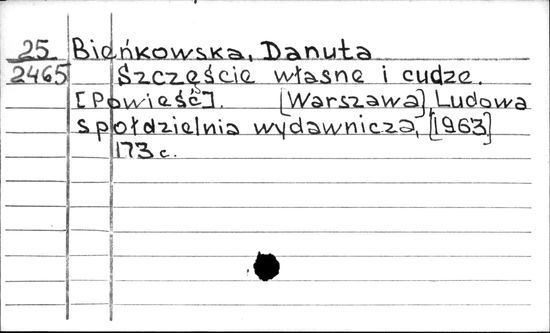 25 Bieńkowska, Danuta
2465 Szczęście własne i cudze.
[Powieść]. [Warszawa], Ludowa
społdzielnia wydawnicza, [1963]
173 c.